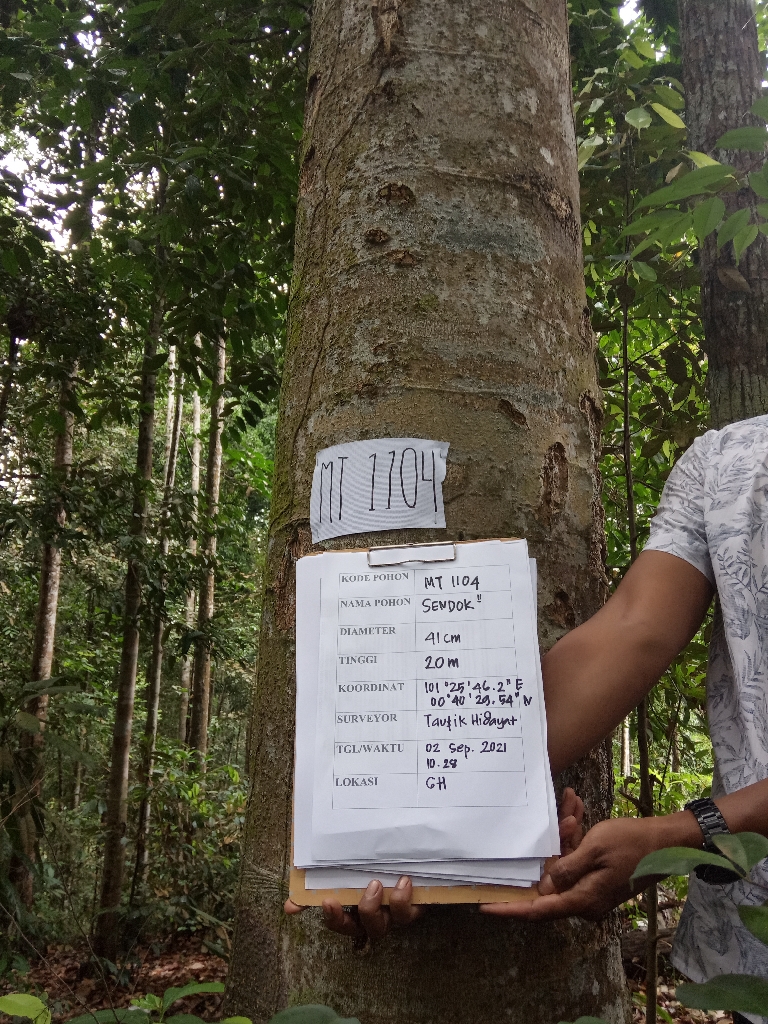 MT 1104
KODE POHON MT 1104
NAMA POHON SENDOK"
DIAMETER 41 cm
TINGGI 20 m
KOORDINAT 101°25'46.2" E
00°40'29.54" N
SURVEYOR Taufik Hidayat
TGL/WAKTU 02 Sep. 2021
10.28
LOKASI GH